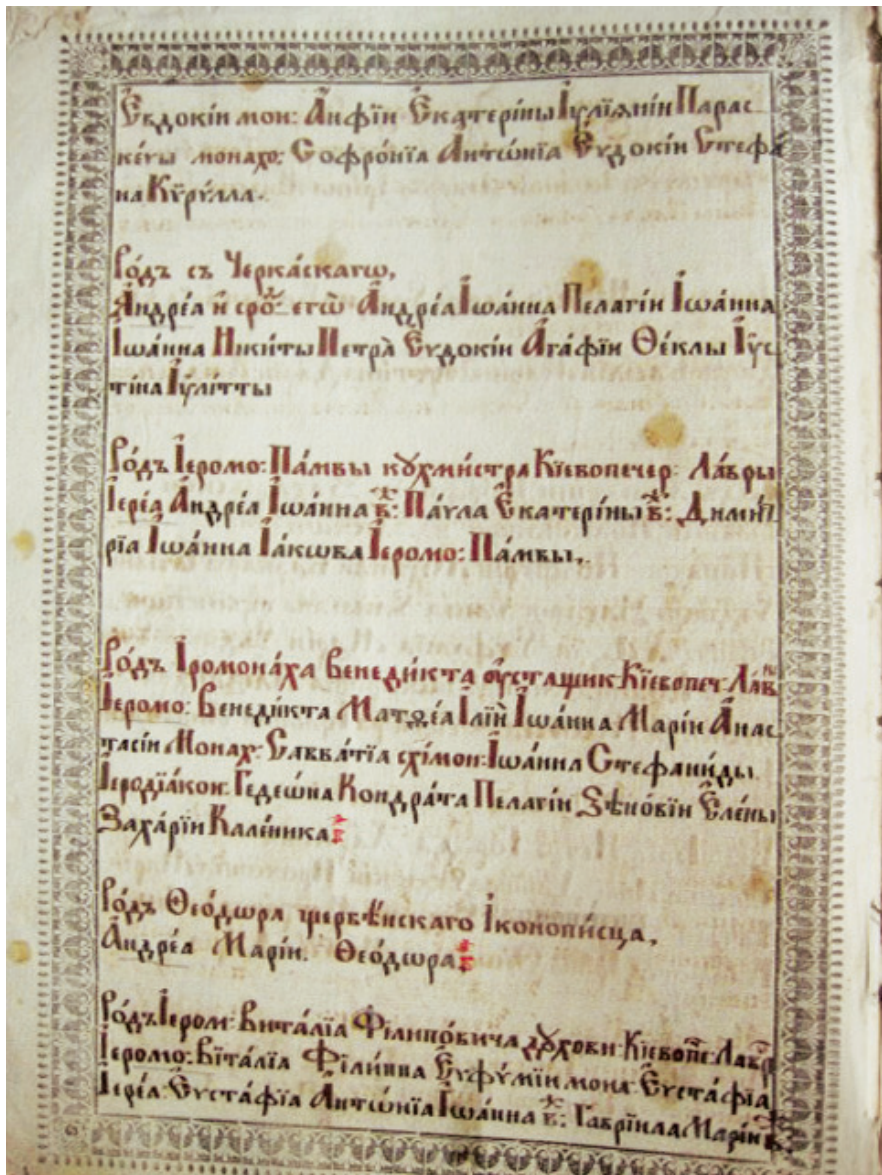 Евдокіи мон: Анфіи Екатеріны Іуліяніи Парас
кеѵы монахо: Софронїа Антѡнїа Еѵдокіи Стефа
на Кѷрулла.
Родъ съ Черка́скагѡ,
Андре́а и҆ сро: егѡ̀ Андре́а Іѡа́нна Пелагеи Іѡа́нна
Іѡа́нна Ники́ты Петра̀ Еѵдокіи Ага́фїи Ѳе́клы Іус
ті́на Іулі́тты
Ро́дъ Іеромо: Па́мвы кꙋхми́стра Кїевопечер: Ла́вры
Іере́а Андре́а Іѡа́нна в҃: Па́ѵла Екатеріны в҃: Дими́т
рїа Іѡа́нна Іа́кѡва Іеромо: Па́мвы,
Ро́дъ Іромона́ха Венеди́кта оуста́щик Кїевопеч: Ла́в
Іеромо: Венеди́кта Матѳеа Ілїѝ Іѡа́нна Маріи Анас
тасіи Монах: Савва́тїа схі́мон: Іѡа́нна Стефани́ды
Іеродїа́кон: Гедеѡ́на Кондра́та Пелагіи Ѕѣно́вїи Еле́ны
Заха́рїи Кале́ника
Ро́дъ Ѳео́дѡра щербѣ́нскаго Іконопи́сца,
Андре́а Маріи. Ѳео́дѡра
Ро́дъ Іером: Вита́лїа Філипо́вича дꙋ́хови: Кїевопе: Лавр
Іеромо: Віта́лїа Філи́ппа Еѵфѵ́міи мона: Еѵста́фїа
Іере́а: Еѵста́фїа Антѡ́нїа Іѡа́нна в҃: Гаврїила Маріи в҃